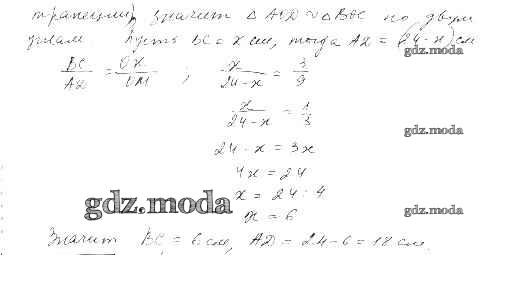 трапеции), значит △ AOD ∾ △ BOC по двум
углам Пусть BC = x см, тогда AD = (24-x) см
gdz.moda
BC/AD = OK/OM ; x/24-x = 3/9
x/24-x = 1/3
gdz.moda
24 - x = 3x
4x = 24
gdz.moda
x = 24 : 4
gdz.moda
x = 6
Значит BC = 6 см, AD = 24-6 = 18 см.